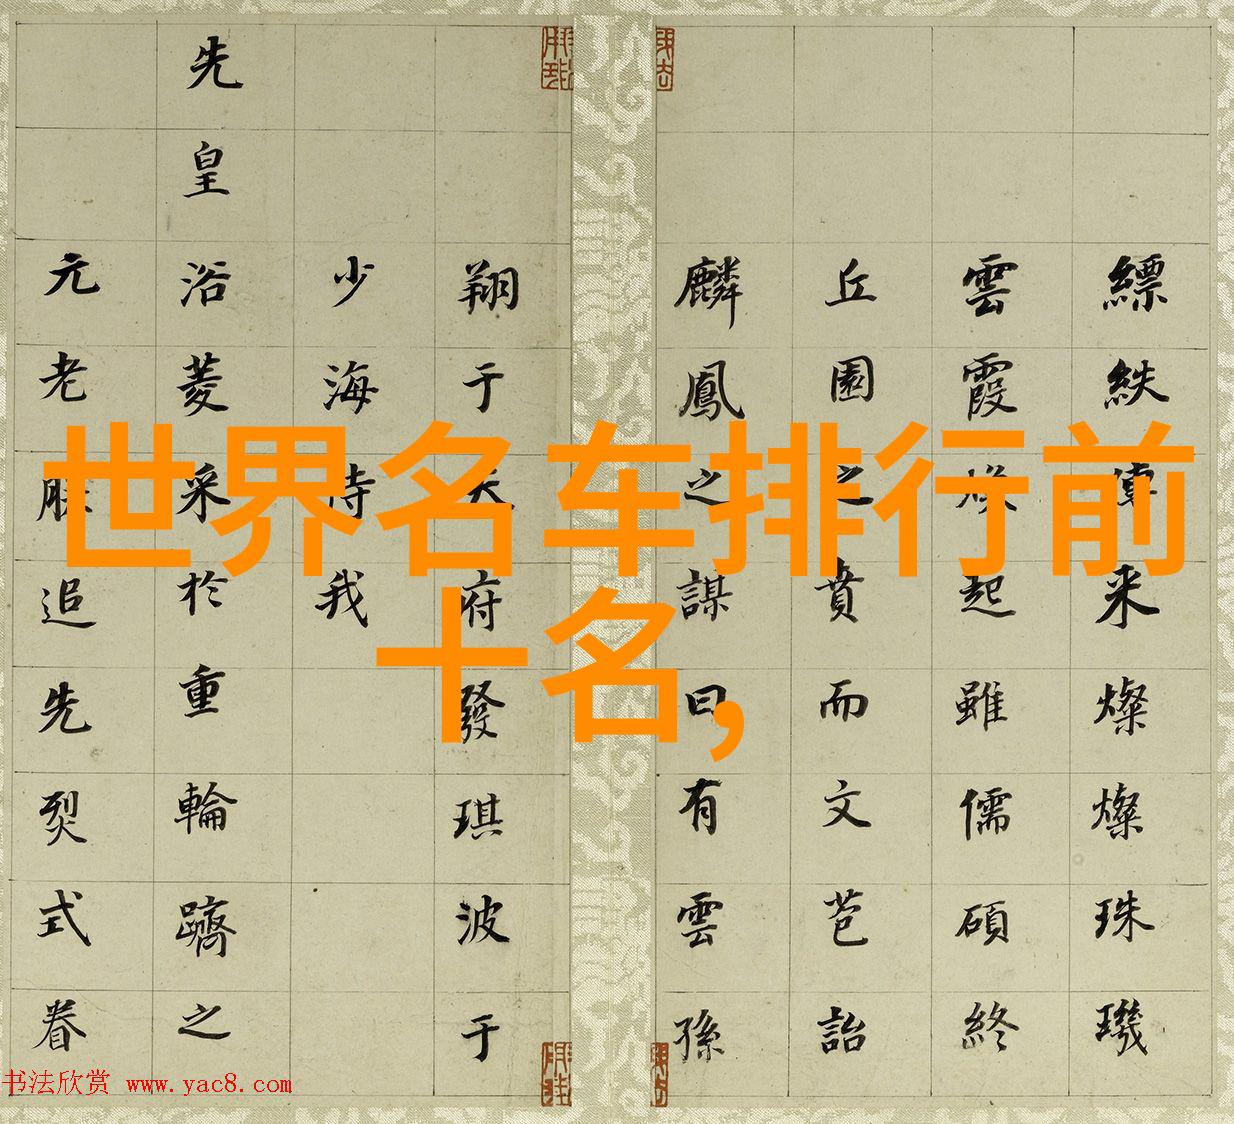 世界名车排行前
十名,
縹紩傳来燦燦珠璣
雲霞焕起雖儒碩終
丘園之賁而文芑詒
麟鳳之謀曰有雲孫
翔于天府發琪波于
少海侍我
先皇浴菱采於重輪躋之
元老朕追先烈式眷
书法欣赏 www.yac8.com